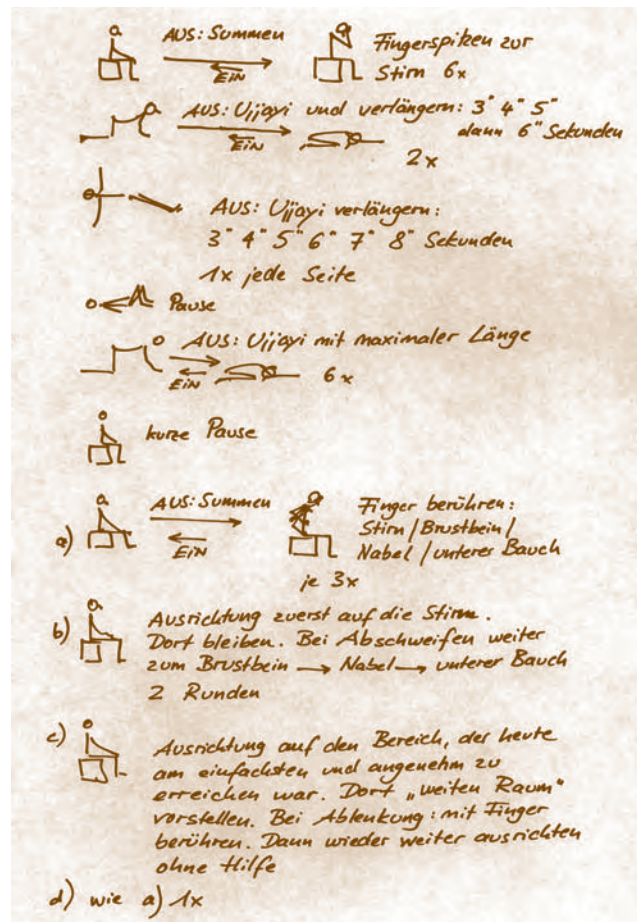 AUS: Summen
EIN
Fingerspitzen zur
Stirn 6x
AUS: Ujjayi und verlängern: 3" 4" 5"
dann 6" Sekunden
EIN
2x
AUS: Ujjayi verlängern:
3" 4" 5" 6" 7" 8" Sekunden
1x jede Seite
Pause
AUS: Ujjayi mit maximaler Länge
EIN
6x
kurze Pause
a)
AUS: Summen
EIN
Finger berühren:
Stirn / Brustbein /
Nabel / unterer Bauch
je 3x
b)
Ausrichtung zuerst auf die Stirn.
Dort bleiben. Bei Abschweifen weiter
zum Brustbein → Nabel → unterer Bauch
2 Runden
c)
Ausrichtung auf den Bereich, der heute
am einfachsten und angenehm zu
erreichen war. Dort „weiten Raum"
vorstellen. Bei Ablenkung: mit Finger
berühren. Dann wieder weiter ausrichten
ohne Hilfe
d) wie a) 1x